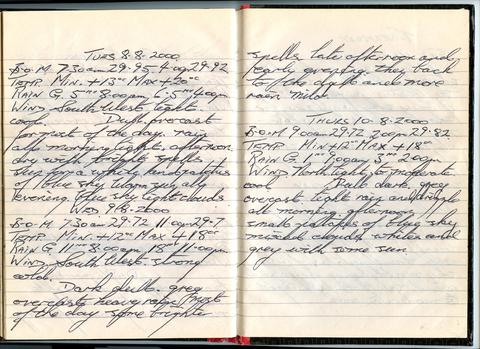 TUES 8-8-2000
B.O.M 7 30am 29-95 4 pm 29-92
TEMP MIN + 13°C MAX + 20°C
RAIN G. 5mm 8:00am 6.5mm 4pm
WIND South West light
cool. Dull overcast
for most of the day. rain
all morning light. afternoon
dry with bright spells
sun for a while and patches
of blue sky warm sun all
evening blue sky light clouds
WED 9-8-2000
B.O.M 7 30am 29-72 11 pm 29-7
TEMP MIN + 12°C MAX + 18°C
RAIN G 1mm 8:00am 18mm 11:00pm
WIND South West strong
cold.
Dark dull. grey
overcast heavy rain most
of the day some brighter
spells late afternoon and
early evening. then back
to the dull and more
rain. Mild.
THURS 10-8-2000
B.O.M 9 00am 29-72 29-82
TEMP MIN +12°C MAX +18°C
RAIN G. 1mm 9 00am 3mm 2 00pm
WIND North light to moderate
cool Dull dark. grey
overcast. light rain and drizzle
all morning. afternoon
small patches of blue sky
mixed clouds whites and
grey with some sun